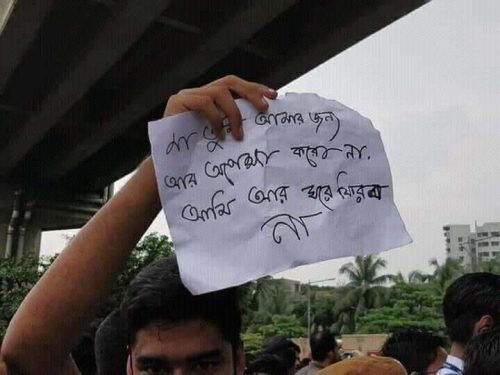 মা তুমি আমার জন্য
আর অপেক্ষা করো না.
আমি আর ঘরে ফিরব
না